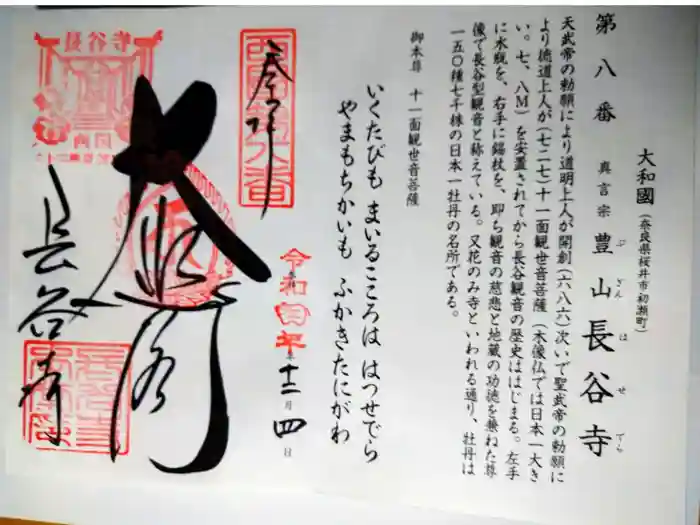 大和國（奈良県桜井市初瀬町）
第八番 真言宗 豊山 長谷寺
ぶざん はせでら
天武帝の勅願により道明上人が開創（六八六）次いで聖武帝の勅願に
より徳道上人が（七二七）十一面観世音菩薩（木像仏では日本一大き
い。七、八M）を安置されてから長谷観音の歴史ははじまる。左手
に水瓶を、右手に錫杖を、即ち観音の慈悲と地蔵の功徳を兼ねた尊
像で長谷型観音と称えている。又花のみ寺といわれる通り、牡丹は
一五〇種七千株の日本一牡丹の名所である。
御本尊 十一面観世音菩薩
いくたびも まいるこころは はつせでら
やまもちかいも ふかきたにがわ
奉拝
令和 年 十二月 四日
大悲閣
長谷寺
長谷寺
西国